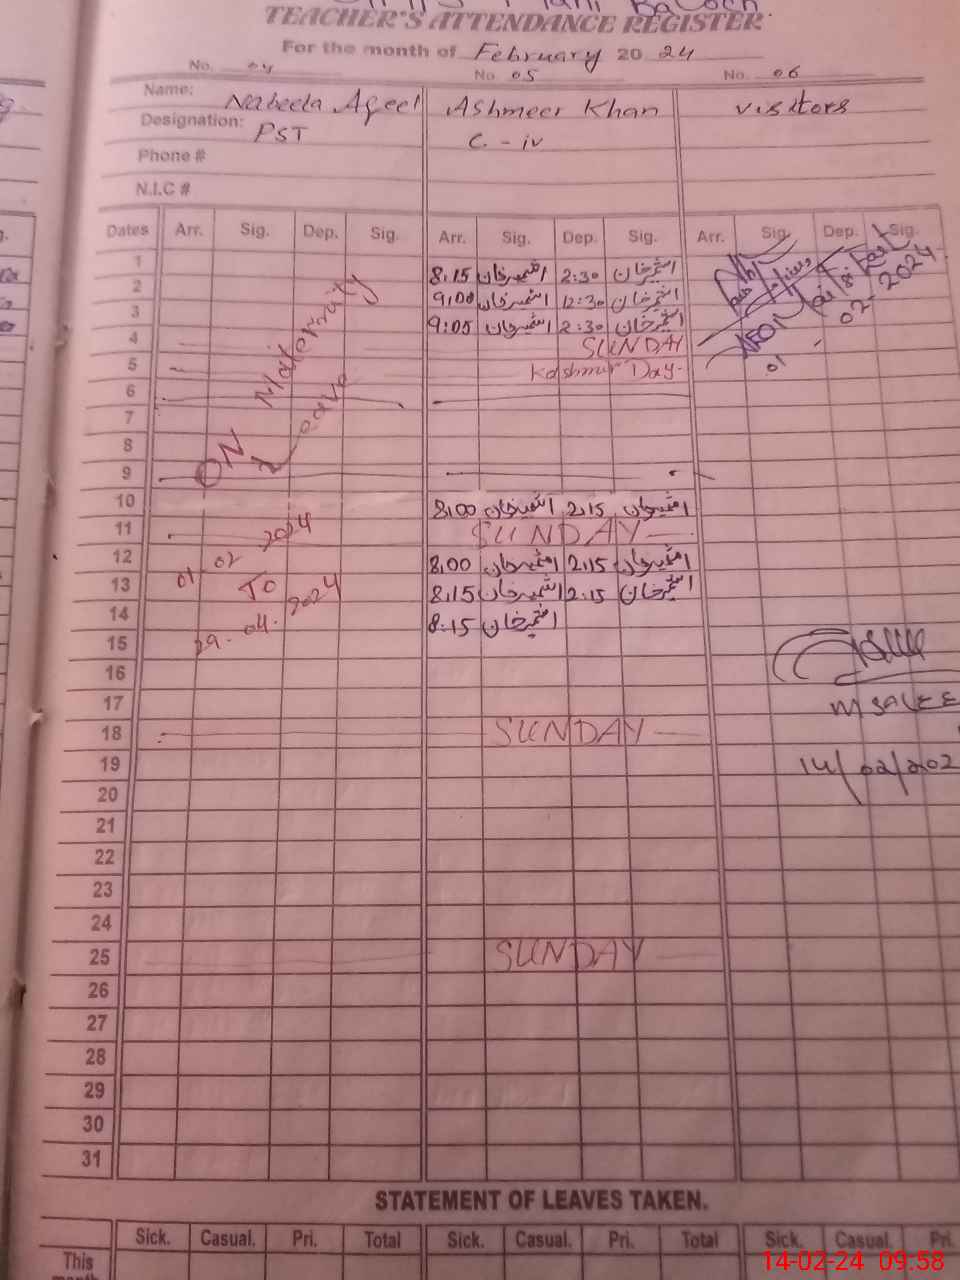 TEACHER'S ATTENDANCE REGISTER
For the month of February 20 24
No. 04 No. 05 No. 06
Name: Nabeela Aqeel Ashmeer Khan visitors
Designation: PST C. - iv
Phone #
N.I.C #
Dates Arr. Sig. Dep. Sig. Arr. Sig. Dep. Sig. Arr. Sig. Dep. Sig.
1 8:15 اشمیرخان 2:30 اشمیرخان
2 9,00 اشمیرخان 12:30 اشمیرخان
3 9:05 اشمیرخان 2:30 اشمیرخان
4 SUNDAY
5 Kashmir Day.
6
7
8
9
10 8,00 اشمیرخان 2,15 اشمیرخان
11 SUNDAY
12 8,00 اشمیرخان 2,15 اشمیرخان
13 8,15 اشمیرخان 2:15 اشمیرخان
14 8:15 اشمیرخان
15
16
17
18 SUNDAY
19
20
21
22
23
24
25 SUNDAY
26
27
28
29
30
31
ON Maternity
Leave
01-02 2024
TO
29-04-2024
01 02-2024
14/02/202
STATEMENT OF LEAVES TAKEN.
Sick. Casual. Pri. Total Sick. Casual. Pri. Total Sick. Casual. Pri.
This
month
14-02-24 09:58